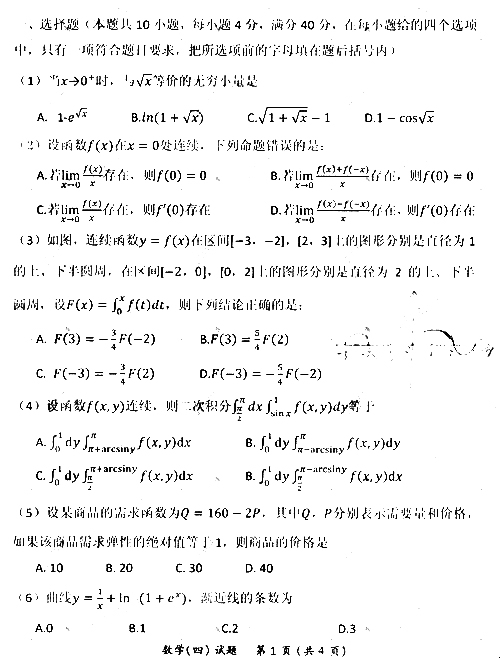 一、选择题（本题共 10 小题，每小题 4 分，满分 40 分，在每小题给的四个选项
中，只有一项符合题目要求，把所选项前的字母填在题后括号内）
（1）当x→0⁺时，与√x等价的无穷小量是
A. 1-e^√x B.ln(1 + √x) C.√(1 + √x) − 1 D.1 − cos√x
（2）设函数f(x)在x = 0处连续，下列命题错误的是：
A.若lim_{x→0} f(x)/x 存在，则f(0) = 0 B.若lim_{x→0} (f(x)+f(−x))/x 存在，则f(0) = 0
C.若lim_{x→0} f(x)/x 存在，则f′(0)存在 D.若lim_{x→0} (f(x)−f(−x))/x 存在，则f′(0)存在
（3）如图，连续函数y = f(x)在区间[−3，−2]，[2，3]上的图形分别是直径为 1
的上、下半圆周，在区间[−2，0]，[0，2]上的图形分别是直径为 2 的上、下半
圆周，设F(x) = ∫₀ˣ f(t)dt，则下列结论正确的是：
A. F(3) = −3/4 F(−2) B.F(3) = 5/4 F(2)
C. F(−3) = −3/4 F(2) D.F(−3) = −5/4 F(−2)
（4）设函数f(x, y)连续，则二次积分∫_{π/2}^{π} dx ∫_{sin x}^{1} f(x, y)dy等于
A. ∫₀¹ dy ∫_{π+arcsiny}^{π} f(x, y)dx B. ∫₀¹ dy ∫_{π−arcsiny}^{π} f(x, y)dy
C. ∫₀¹ dy ∫_{π/2}^{π+arcsiny} f(x, y)dx B. ∫₀¹ dy ∫_{π/2}^{π−arcsiny} f(x, y)dx
（5）设某商品的需求函数为Q = 160 − 2P，其中Q，P分别表示需要量和价格，
如果该商品需求弹性的绝对值等于 1，则商品的价格是
A. 10 B. 20 C. 30 D. 40
（6）曲线y = 1/x + ln (1 + eˣ)，渐近线的条数为
A.0 B.1 C.2 D.3
数学(四)试题 第 1 页 (共 4 页)